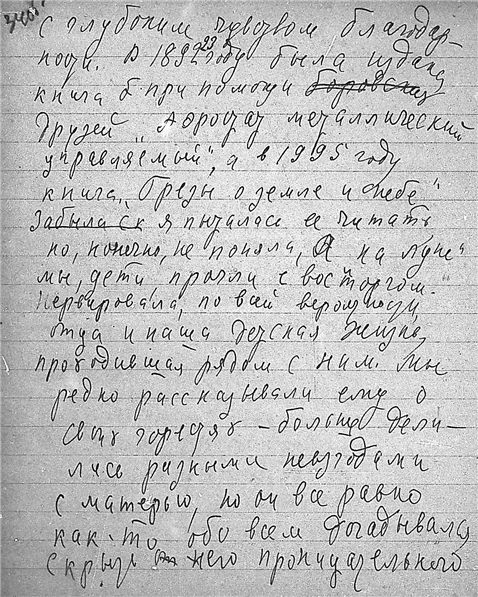 с глубоким чувством благодар-
ности. В 1892 23 году была издана
книга б. при помощи боровских
друзей „Аэростат металлический
управляемый", а в 1995 году
книга „Грезы о земле и небе"
Забылась я пыталась ее читать
но, конечно, не поняла, А на Луне"
мы, дети, прочли с восторгом."
Нервировала, по всей вероятности
отца и наша детская жизнь,
проходившая рядом с ним. Мы
редко рассказывали ему о
своих горестях – больше дели-
лись разными невзгодами
с матерью, но он все равно
как-то обо всем догадывался
Скрыть него проницательного